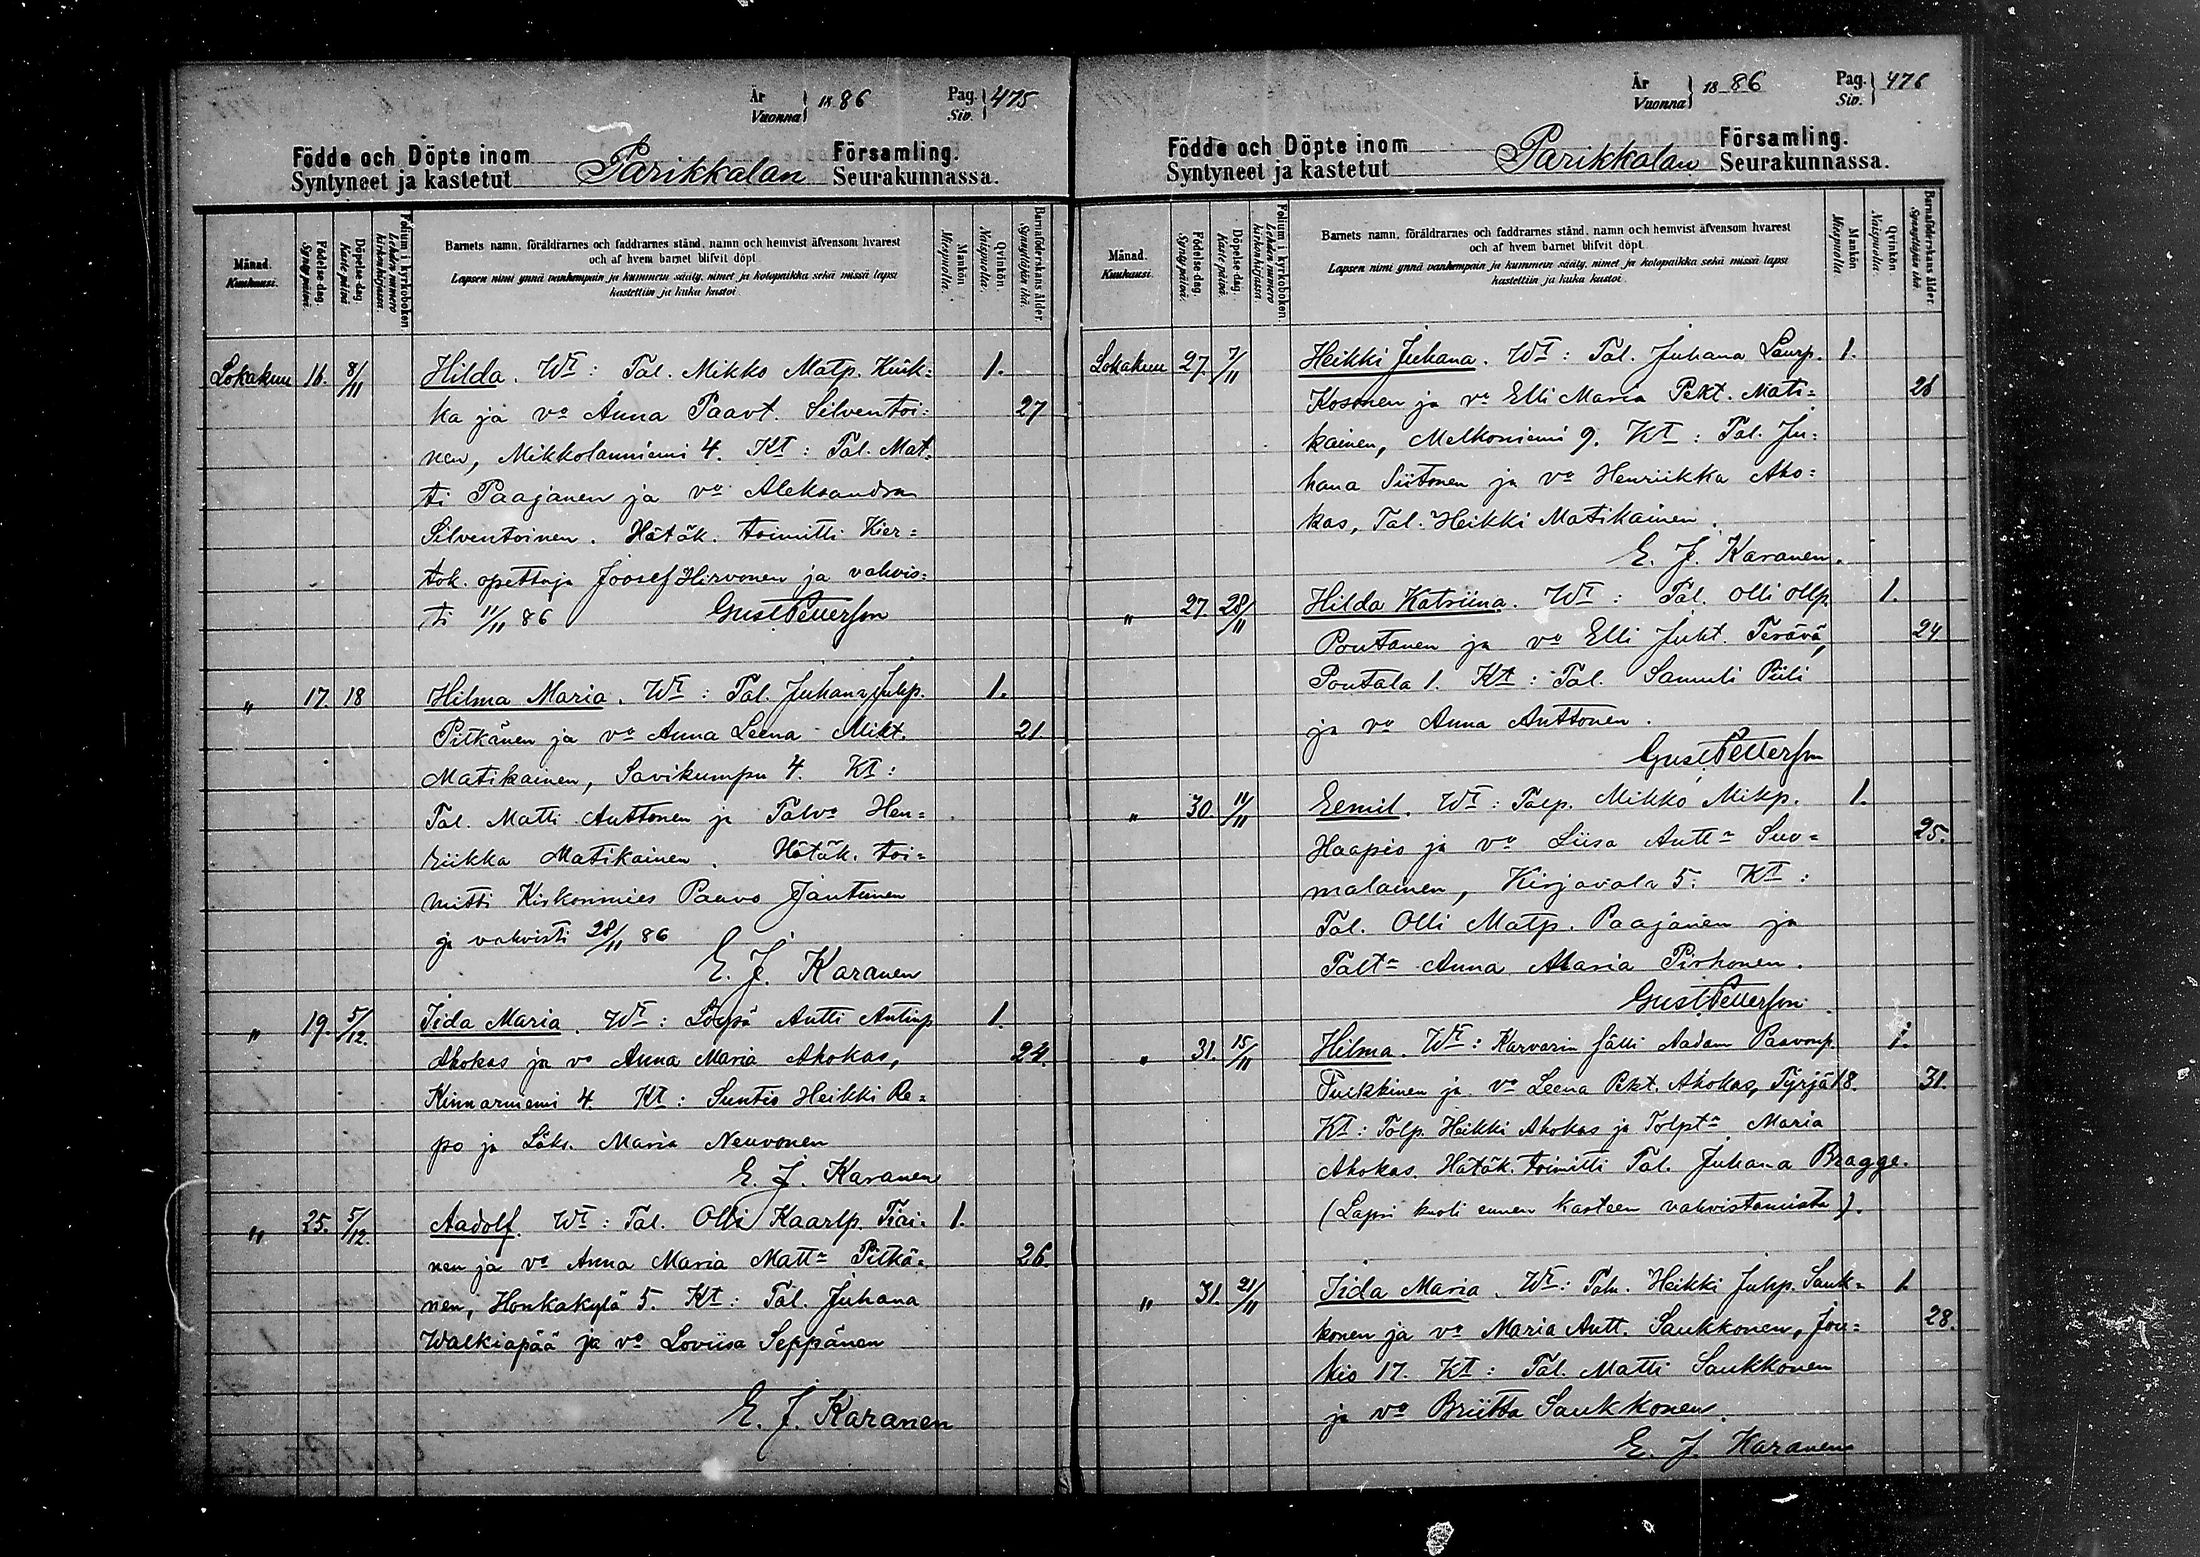 År Vuonna } 1886 Pag. Siv. } 475
Födde och Döpte inom Parikkalan Församling.
Syntyneet ja kastetut Seurakunnassa.
Månad. Kuukausi.
Födelse-dag. Syntypäivä.
Döpelse-dag. Kastepäivä.
Folium i kyrkoboken Lehden numero kirkonkirjassa.
Barnets namn, föräldrarnes och faddrarnes stånd, namn och hemvist äfvensom hvarest
och af hvem barnet blifvit döpt.
Lapsen nimi ynnä vanhempain ja kummein sääty, nimet ja kotopaikka sekä missä lapsi
kastettiin ja kuka kastoi.
Mankön Miespuolia.
Qvinkön. Naispuolia.
Barnaföderskans ålder. Synnyttäjän ikä.
Lokakuu 16. 8/11 Hilda. Wt: Tal. Mikko Matp. Kuik= 1.
ka ja vo Anna Paavt. Silventoi= 27
nen, Mikkolanniemi 4. Kt: Tal. Mat=
ti Paajanen ja vo Aleksandra
Silventoinen. Hätäk. toimitti Kier=
tok. opettaja Joosef Hirvonen ja vahvis=
ti 11/11 86 Gust Petterson
" 17. 18 Hilma Maria. Wt: Tal. Juhana Juhp. 1.
Pitkänen ja vo Anna Leena Mikt. 21
Matikainen, Savikumpu 4. Kt:
Tal. Matti Anttonen ja Talvo Hen=
riikka Matikainen. Hätäk. toi=
mitti Kirkonmies Paavo Jantunen
ja vahvisti 28/11 86
E. J. Karanen
" 19. 5/12. Iida Maria. Wt: Antti Antinp 1.
Ahokas ja vo Anna Maria Ahokas, 24.
Kinnarniemi 4. Kt: Suntio Heikki Re=
po ja Läks. Maria Neuvonen
E. J. Karanen
" 25. 5/12. Aadolf. Wt: Tal. Olli Kaarlp. Tiai= 1.
nen ja vo Anna Maria Mattn Pitkä= 26.
nen, Honkakylä 5. Kt: Tal. Juhana
Walkiapää ja vo Loviisa Seppänen
E. J. Karanen
År Vuonna } 1886 Pag. Siv. } 476
Födde och Döpte inom Parikkalan Församling.
Syntyneet ja kastetut Seurakunnassa.
Månad. Kuukausi.
Födelse-dag. Syntypäivä.
Döpelse-dag. Kastepäivä.
Folium i kyrkoboken. Lehden numero kirkonkirjassa.
Barnets namn, föräldrarnes och faddrarnes stånd, namn och hemvist äfvensom hvarest
och af hvem barnet blifvit döpt.
Lapsen nimi ynnä vanhempain ja kummein sääty, nimet ja kotopaikka sekä missä lapsi
kastettiin ja kuka kastoi.
Mankön Miespuolia
Qvinkön. Naispuolia.
Barnaföderskans ålder. Synnyttäjän ikä.
Lokakuu 27. 7/11 Heikki Juhana. Wt: Tal. Juhana Laurp. 1.
Kosonen ja vo Elli Maria Pekt. Mati= 26
kainen, Melkoniemi 9. Kt: Tal. Ju=
hana Siitonen ja vo Henriikka Aho=
kas, Tal. Heikki Matikainen.
E. J. Karanen.
" 27. 28/11 Hilda Katriina. Wt: Tal. Olli Ollp. 1.
Poutanen ja vo Elli Juht. Terävä, 24.
Poutala 1. Kt: Tal. Samuli Piili
ja vo Anna Anttonen.
Gust Petterson
" 30. 11/11 Eemil. Wt: Talp. Mikko Mikp. 1.
Haapio ja vo Liisa Anttn Suo= 25.
malainen, Kirjavala 5. Kt:
Tal. Olli Matp. Paajanen ja
Taltn Anna Maria Pirhonen.
Gust Petterson.
" 31. 15/11 Hilma. Wt: Karvarin Aadam Paavonp. 1.
Puikkinen ja vo Leena Pekt. Ahokas, Tyrjä 18. 31.
Kt: Tolp. Heikki Ahokas ja Tolptn Maria
Ahokas. Hätäk. toimitti Tal. Juhana Bragge.
(Lapsi kuoli ennen kasteen vahvistamista).
" 31. 21/11 Iida Maria. Wt: Heikki Juhp. Sauk= 1.
konen ja vo Maria Antt. Saukkonen, Jou= 28.
kio 17. Kt: Tal. Matti Saukkonen
ja vo Briitta Saukkonen.
E. J. Karanen